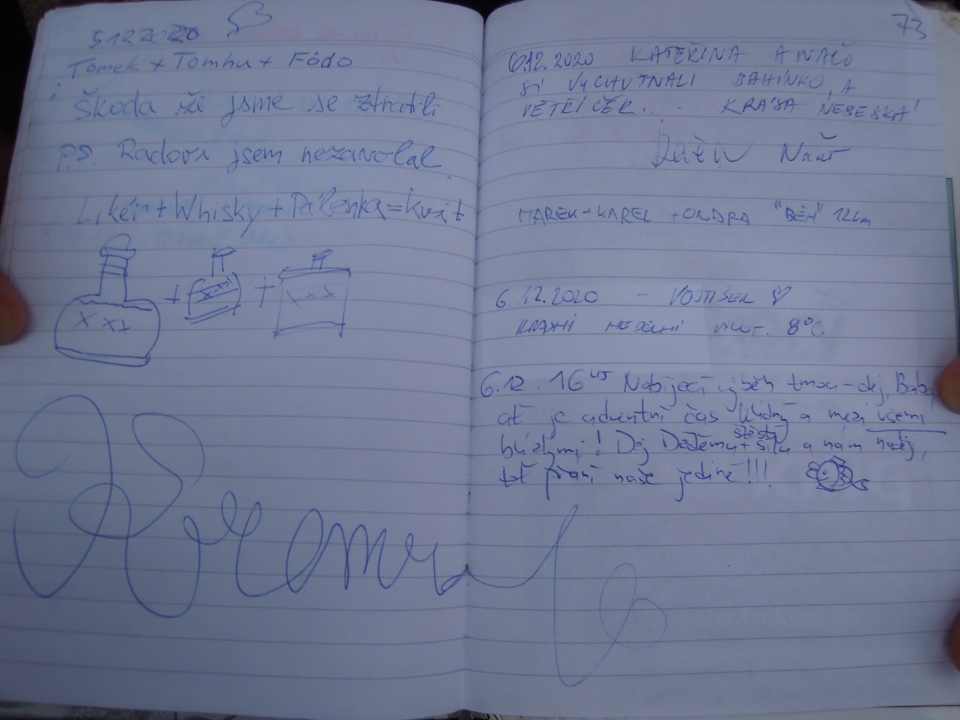 5.12.2020
Tomek + Tomhu + Fódo
Škoda že jsme se ztratili
P.S. Radovi jsem nezavolal.
Likér + Whisky + Pálenka = kvit
XXX + XXX + XXX
73
6.12.2020 KATEŘINA A NAŠ
SI VYCHUTNALI BAHÍNKO, A
VĚTŘÍČEK... KRÁSA NEBESKÁ!
Naš
MAREK + KAREL + ONDRA "BĚH" 12km
6.12.2020 - VOJTÍŠEK
NEDĚLNÍ 8°C
6.12. 16 Nabíjecí výběh tmou - dej, Bab
ať je adventní čas klidný a mezi všemi
blízkými! Dej Dědému štěstí + sílu a nám naděj,
toť přání naše jediné!!!